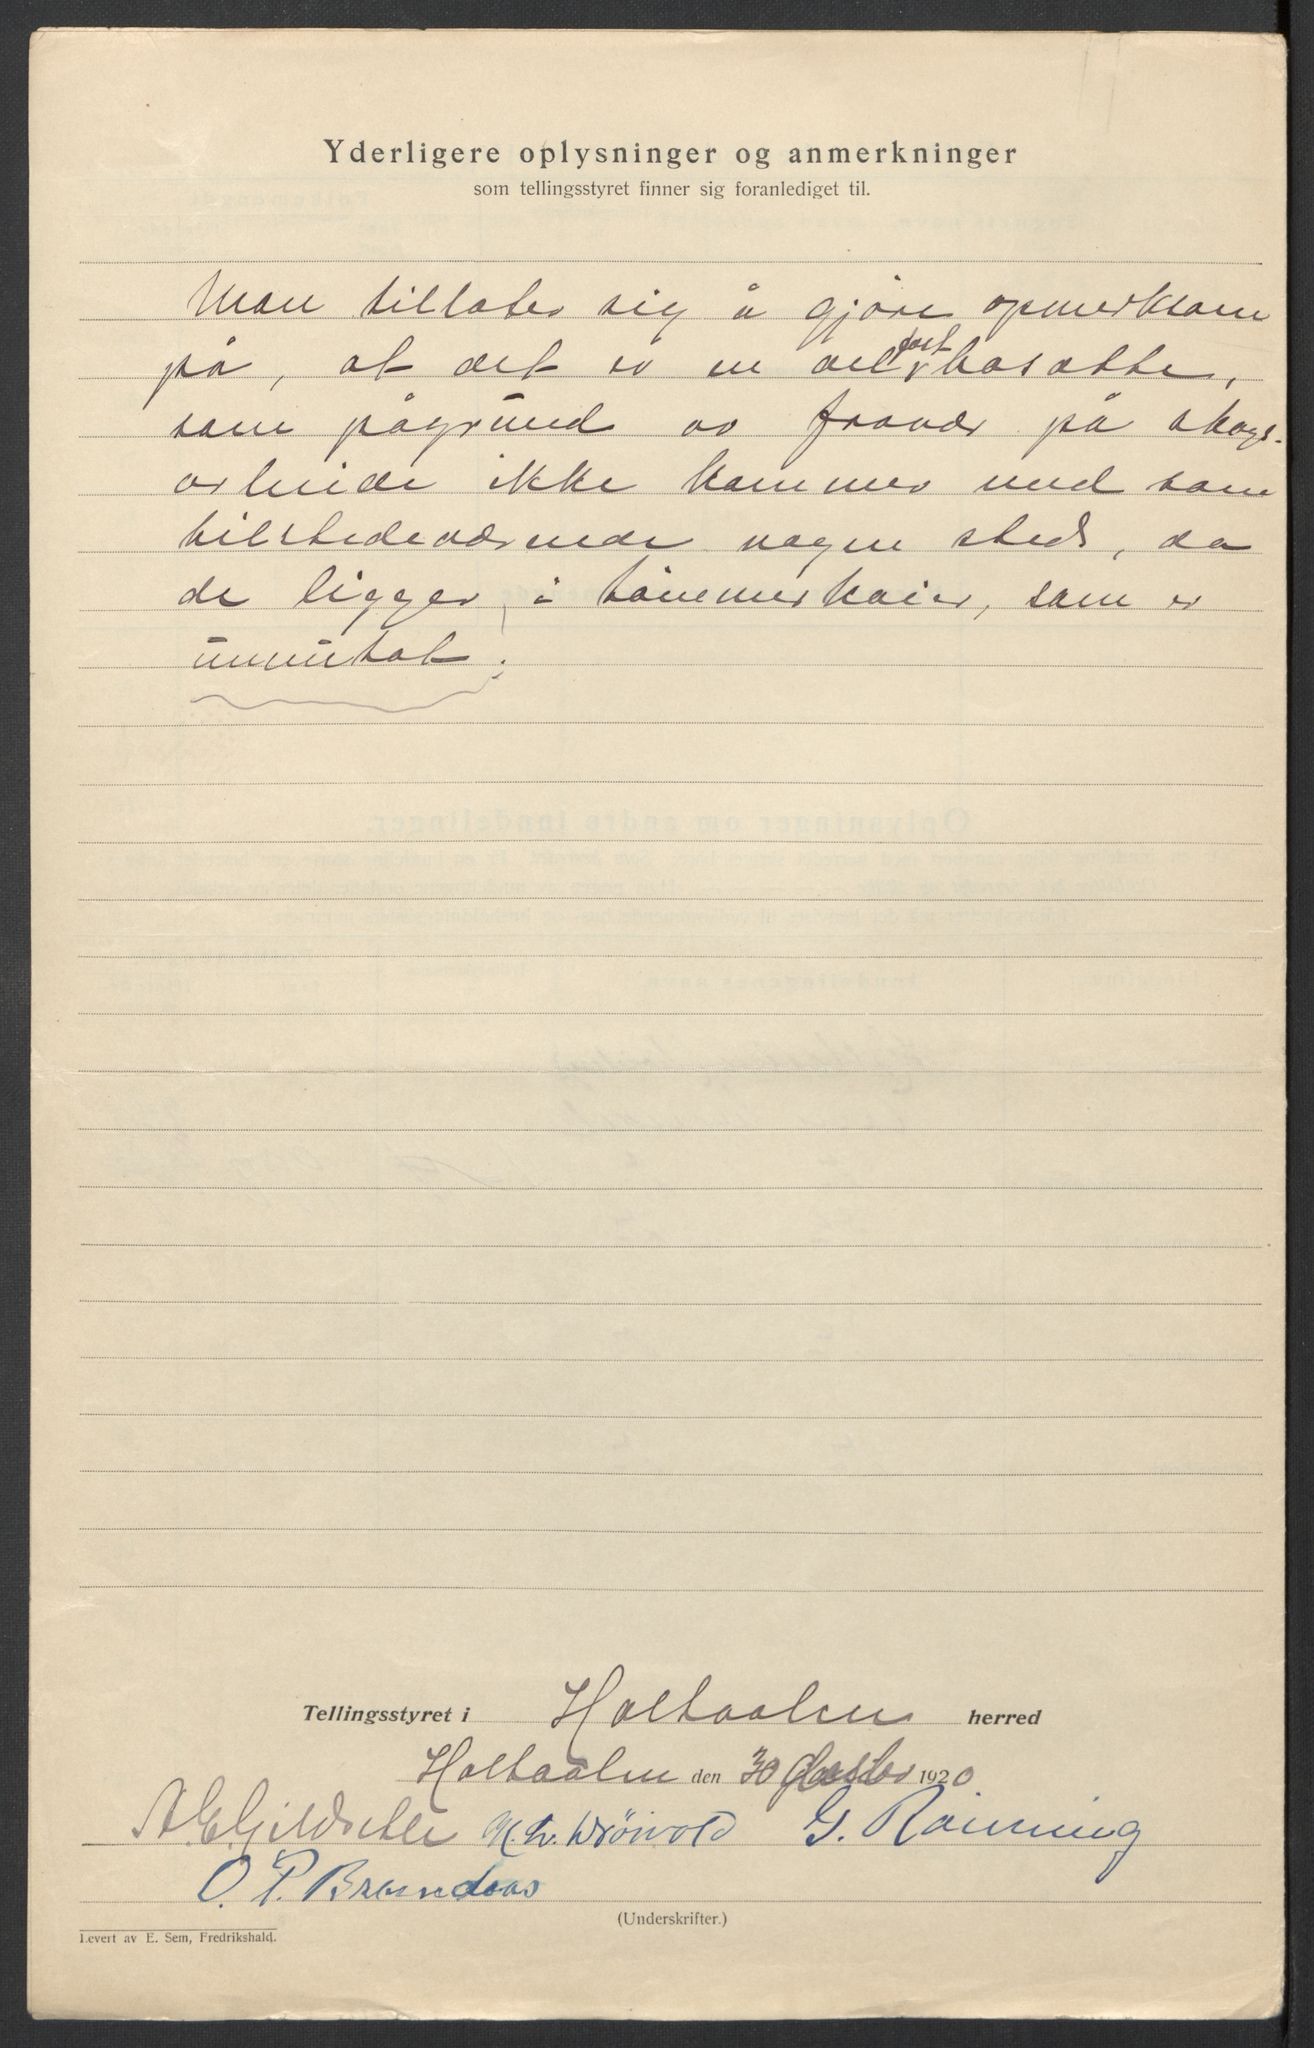 Yderligere oplysninger og anmerkninger
som tellingsstyret finner sig foranlediget til.
Man tillater sig å gjöre opmerksom
på, at det er en del fast bosatte,
som pågrund av fravær på skogs-
arbeide ikke kommer med som
tilstedeværende nogen steds, da
de ligger i tömmerkoier, som er
umutat.
Tellingsstyret i Holtaalen herred
Holtaalen den 30 1920
A. E. Gildseth G. Rönning
O. P. Brandaas
(Underskrifter.)
Levert av E. Sem, Fredrikshald.